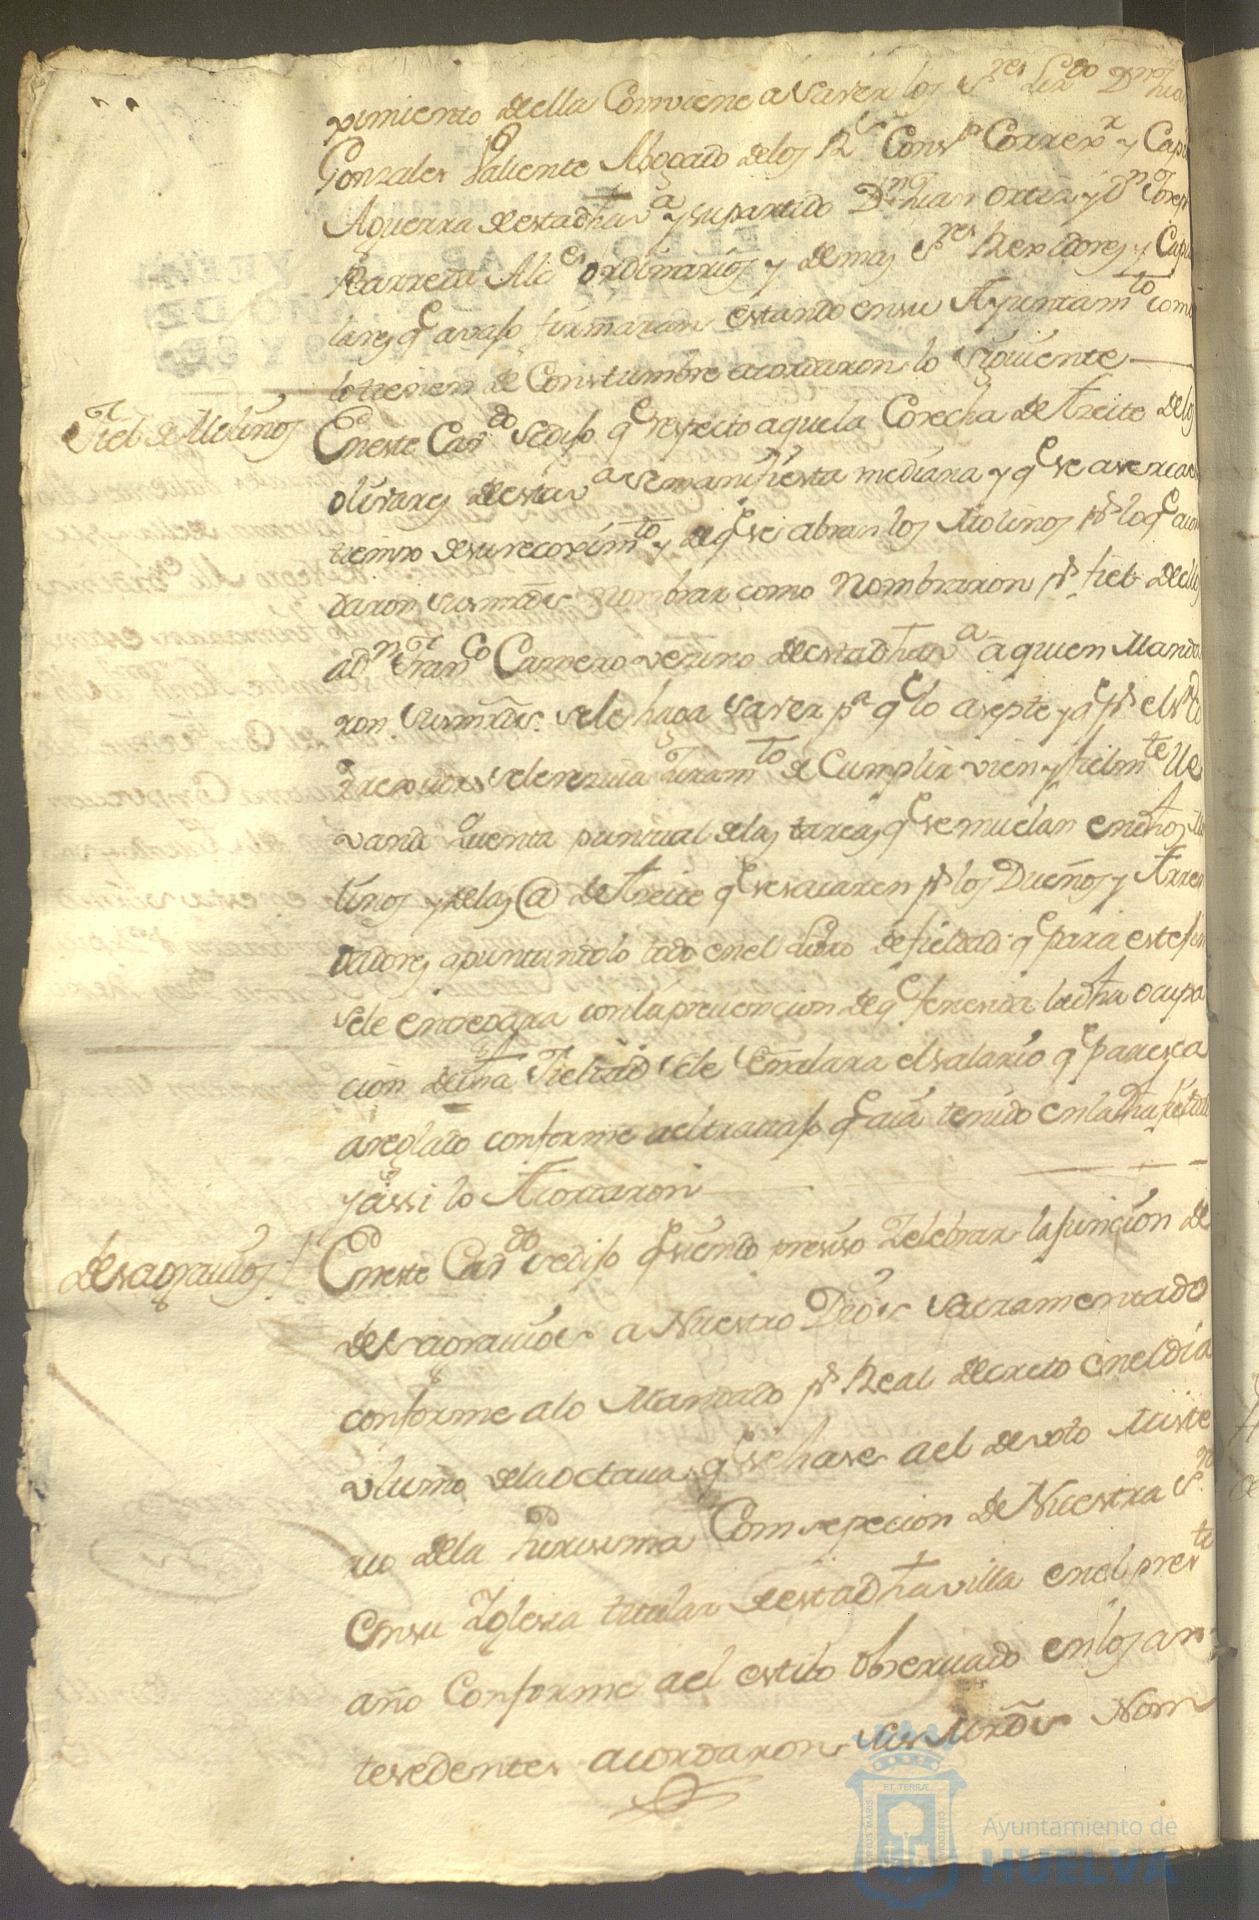 ximiento de ella Combiene a saver los Sres Lizdo Dn
Gonzales Valiente Abogado de los Rs Consos Correxr y Capn
Aguerra de esta dha va y su partido Dn Juan Ortiz y Dn
Barreda Alces ordinarios y demas Sres Rexidores y Capitu
lares qe avajo firmaran estando en su Ayuntamto como
lo tienen de Constumbre acordaron lo siguiente
Fiel de Molinos
En este Cavdo se dijo qe respecto a que la Cosecha de Azeite de los
olivares de esta va se manifiesta mediana y qe se aserca el
tiempo de su recoximto y de qe se abran los Molinos pr lo qe acor
daron sus mrds nombrar como Nombraron pr fiel de ellos
a Dn Franco Carrero vezino de esta dha va a quien Manda
ron sus mrds se le haga saver pa qe lo asepte y qe pr el
se le reziva Juramto de Cumplir vien y fielmte lle
vand quenta puntual de las tareas qe se muelan en dhos Mo
linos y de las @ de Azeite qe se sacaren pr los Dueños y Arren
dadores apuntandolo todo en el Libro de fieldad qe para este fin
se le entregara con la prevencion de qe fenesida la dha ocupa
cion de dha Fieldad se le señalara el salario qe paresca
areglado conforme a el travajo qe aia tenido en la dha fieldad
y assi lo Acordaron
desagravios
En este Cavdo se dijo qe siendo presiso Zelebrar la funcion de
desagravios a Nuestro Dios Sacramentado
conforme a lo Mandado pr Real decreto en el dia
ultimo de la octava qe se hase a el devoto Miste
rio de la Purissima Comsepcion de Nuestra Sra
en su Iglesia titular de esta dha villa en el preste
año Conforme a el estilo observado en los an
tesedentes acordaron sus Mrds Nom
ET TERRÆ
PORTUS MARIS
CUSTODIA
Ayuntamiento de
HUELVA